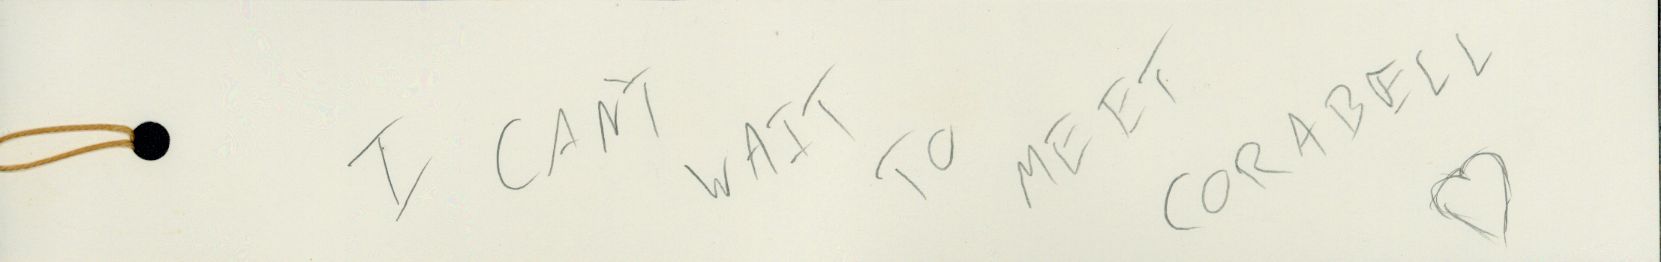 I CAN'T WAIT TO MEET CORABELL ♡